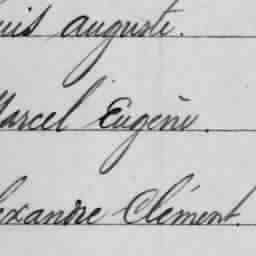 uis auguste.
Marcel Eugène.
exandre Clément.